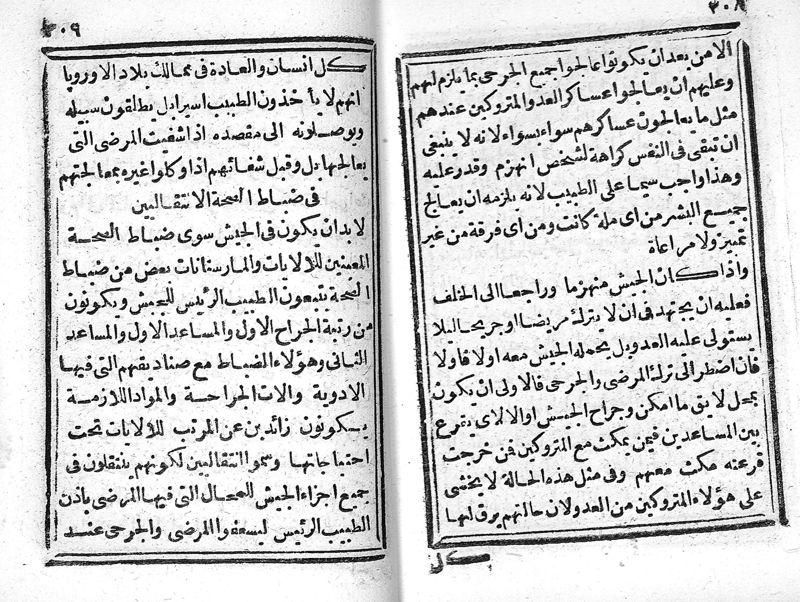 ٣٠٨
الامن بعدان يكونوا عالجوا جميع الجرحى بما يلزم لهم
وعليهم ان يعالجوا عساكر العدو المتروكين عندهم
مثل ما يعالجون عساكرهم سواء بسواء لانه لا ينبغى
ان تبقى فى النفس كراهة لشخص انهزم وقدر عليه
وهذا واجب سيما على الطبيب لانه يلزمه ان يعالج
جميع البشر من اى ملة كانت ومن اى فرقة من غير
تمييز ولا مراعاة
واذا كان الجيش منهزما وراجعا الى الخلف
فعليه ان يجتهد فى ان لا يترك مريضا او جريحا ليلا
يستولى عليه العدو بل يحمله الجيش معه اولا فاولا
فان اضطر الى ترك المرضى والجرحى فالاولى ان يكون
بمحل لايق ما امكن وجراح الجيش او الالاى يقرع
بين المساعدين فيمن يمكث مع المتروكين فمن خرجت
قرعته مكث معهم وفى مثل هذه الحالة لا يخشى
على هؤلاء المتروكين من العدو لان حالتهم يرق لها
كل
٣٠٩
كل انسان والعادة فى ممالك بلاد الاوروپا
انهم لا يأخذون الطبيب اسيرا بل يطلقون سبيله
ويوصلونه الى مقصده اذا شفيت المرضى التى
يعالجها بل وقبل شفائهم اذا وكلوا غيره بمعالجتهم
فى ضباط الصحة الانتقاليين
لابد ان يكون فى الجيش سوى ضباط الصحة
المعينين للالايات والمارستانات بعض من ضباط
الصحة يتبعون الطبيب الرئيس للجيش ويكونون
من رتبة الجراح الاول والمساعد الاول والمساعد
الثانى وهؤلاء الضباط مع صناديقهم التى فيها
الادوية والات الجراحة والمواد اللازمة
يكونون زائدين عن المرتب للالايات تحت
احتياجاتها وسموا انتقاليين لكونهم ينتقلون فى
جميع اجزاء الجيش للمحال التى فيها المرضى باذن
الطبيب الرئيس ليسعفوا المرضى والجرحى عند